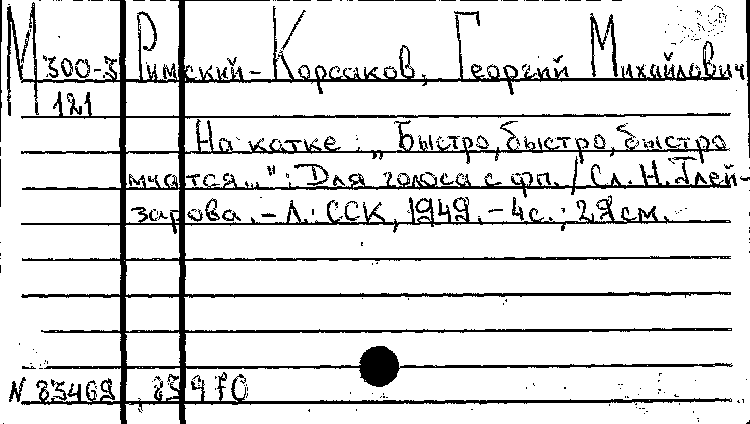 М 300-3 Римский-Корсаков, Георгий Михайлович
121
На катке: „Быстро, быстро, быстро
мчатся..." : Для голоса с фп. / Сл. Н. Глей-
зарова. - Л.: ССК, 1949. - 4 с.; 29 см.
N 83469, 83970